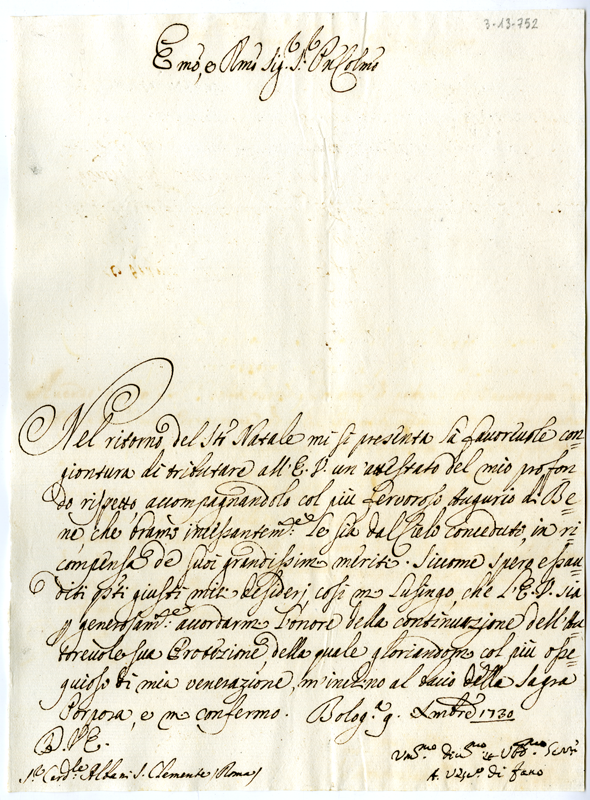 3-13-752
Emo, e Rmo Sig.r S.r Pn Colmo
Nel ritorno del Sto Natale mi si presenta la favorevole con=
giontura di tributare all'E. V. un'attestato del mio profon=
do rispetto, accompagnandolo col più fervoroso Augurio di Be=
ne, che bramo incessantem.te Le sia dal Cielo conceduto, in ri=
compensa de' suoi grandissimi meriti. Siccome spero essau=
diti questi giusti miei desiderj, così mi Lusingo, che L'E. V. sia
p generosam.te accordarmi L'onore della continuazione dell'Au=
torevole sua Protezione, della quale gloriandomi col più osse=
quioso di mia venerazione, m'inchino al bacio della Sagra
Porpora, e mi confermo. Bolog.a 9. Xmbre 1730
D. V. E.
S.r Card.le Albani S. Clemente (Roma)
Um.mo div.mo Obb.mo Serv.
A. Vesc.o di Fano